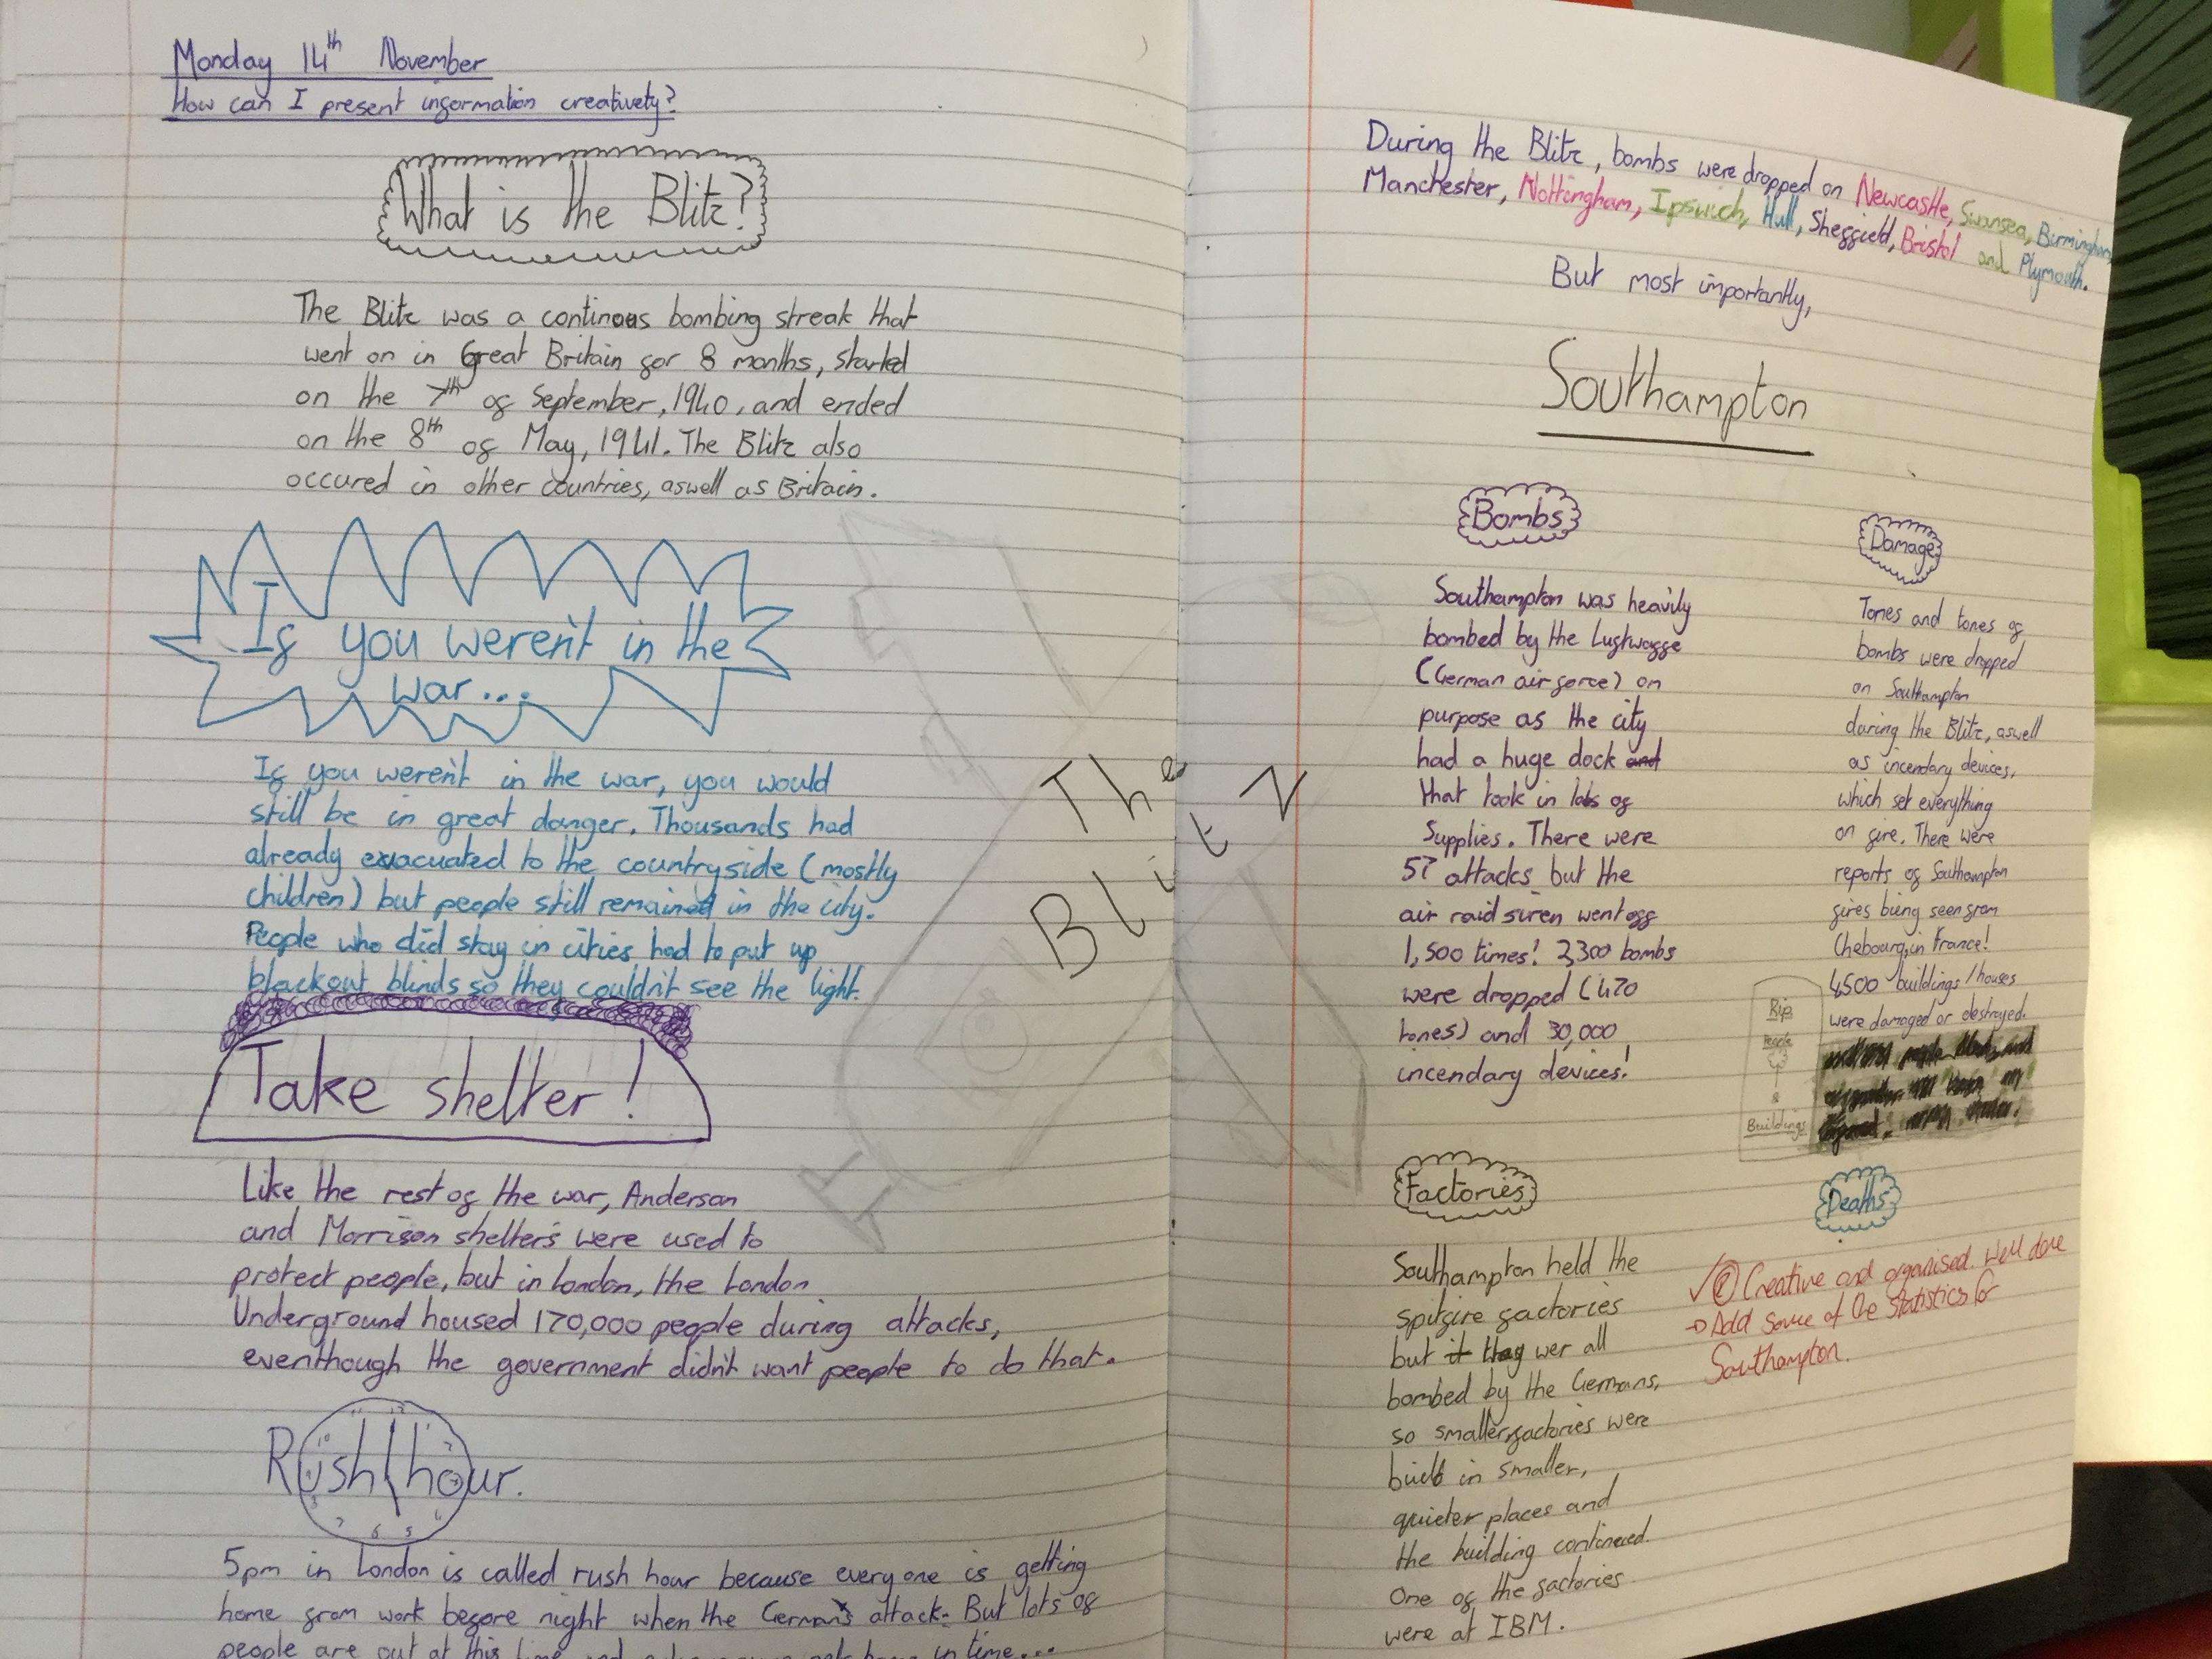 Monday 14th November
How can I present information creatively?
What is the Blitz?
The Blitz was a continous bombing streak that
went on in Great Britain for 8 months, started
on the 7th of September, 1940, and ended
on the 8th of May, 1941. The Blitz also
occured in other countries, aswell as Britain.
If you weren't in the
war...
If you weren't in the war, you would
still be in great danger. Thousands had
already evacuated to the countryside (mostly
children) but people still remained in the city.
People who did stay in cities had to put up
blackout blinds so they couldn't see the light.
Take shelter!
Like the rest of the war, Anderson
and Morrison shelters were used to
protect people, but in London, the London
Underground housed 170,000 people during attacks,
eventhough the government didn't want people to do that.
Rush hour.
5pm in London is called rush hour because everyone is getting
home from work before night when the Germans attack. But lots of
people are out at this time and in time...
The
Blitz
During the Blitz, bombs were dropped on Newcastle, Swansea, Birmingham,
Manchester, Nottingham, Ipswich, Hull, Sheffield, Bristol and Plymouth.
But most importantly,
Southampton
Bombs
Southampton was heavily
bombed by the Luftwaffe
(German air force) on
purpose as the city
had a huge dock and
that took in lots of
supplies. There were
57 attacks but the
air raid siren went off
1,500 times! 2,300 bombs
were dropped (470
tones) and 30,000
incendary devices!
Damage
Tones and tones of
bombs were dropped
on Southampton
during the Blitz, aswell
as incendary devices,
which set everything
on fire. There were
reports of Southampton
fires being seen from
Chebourg, in France!
4500 buildings/houses
were damaged or destroyed.
Rip
People
&
Buildings
Factories
Southampton held the
spitfire factories
but it they wer all
bombed by the Germans,
so smaller factories were
built in smaller,
quieter places and
the building continued.
One of the factories
were at IBM.
Deaths
Creative and organised. Well done
Add source of the statistics for
Southampton.